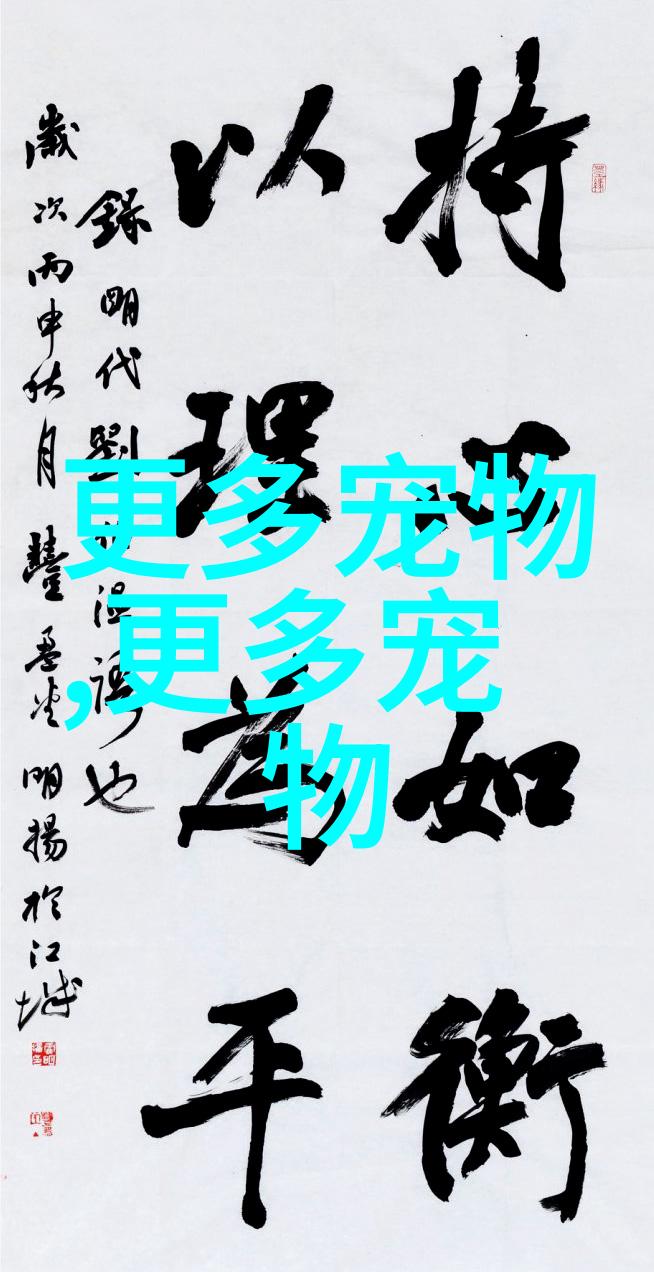 持心如衡
以理為平
錄明代劉温語也
歲次丙申秋月明揚於江城
更多宠物
,更多宠
物